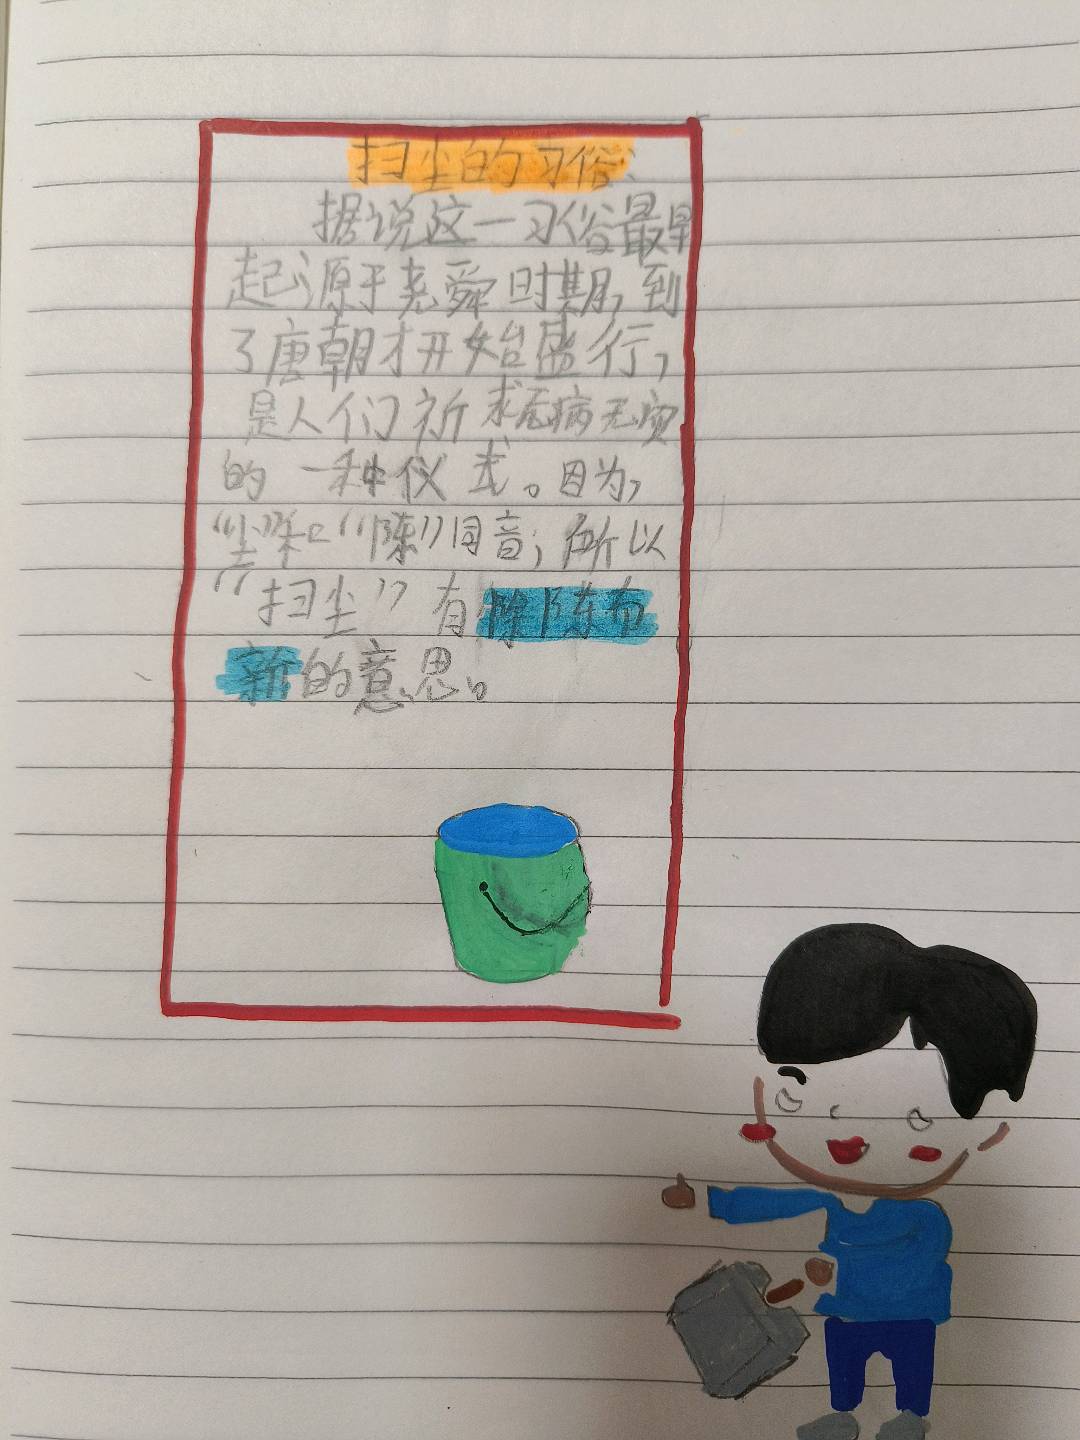 扫尘的习俗
据说这一习俗最早
起源于尧舜时期，到
了唐朝才开始盛行，
是人们祈求无病无灾
的一种仪式。因为，
“尘”和“陈”同音，所以
“扫尘”有除陈布
新的意思。